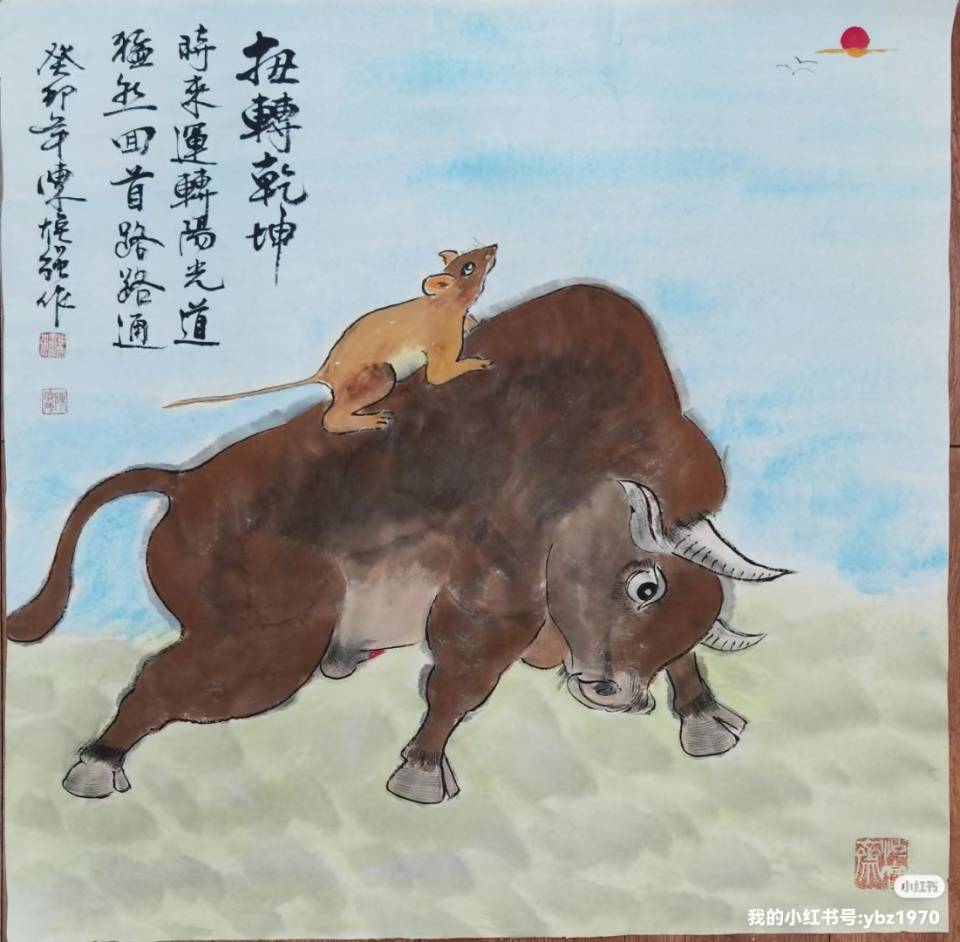 扭轉乾坤
時來運轉陽光道
猛然回首路路通
癸卯年陳煥強作
小红书
我的小红书号:ybz1970